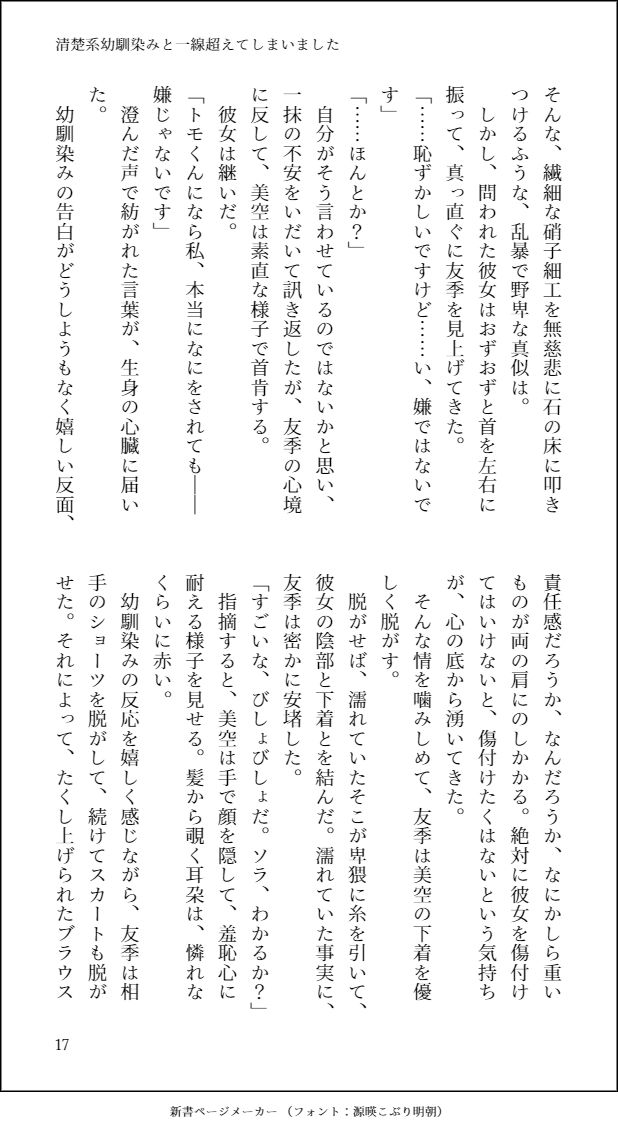 清楚系幼馴染みと一線超えてしまいました
そんな、繊細な硝子細工を無慈悲に石の床に叩き
つけるふうな、乱暴で野卑な真似は。
　しかし、問われた彼女はおずおずと首を左右に
振って、真っ直ぐに友季を見上げてきた。
「……恥ずかしいですけど……い、嫌ではないで
す」
「……ほんとか？」
　自分がそう言わせているのではないかと思い、
一抹の不安をいだいて訊き返したが、友季の心境
に反して、美空は素直な様子で首肯する。
　彼女は継いだ。
「トモくんになら私、本当になにをされても――
嫌じゃないです」
　澄んだ声で紡がれた言葉が、生身の心臓に届い
た。
　幼馴染みの告白がどうしようもなく嬉しい反面、
責任感だろうか、なんだろうか、なにかしら重い
ものが両の肩にのしかかる。絶対に彼女を傷付け
てはいけないと、傷付けたくはないという気持ち
が、心の底から湧いてきた。
　そんな情を噛みしめて、友季は美空の下着を優
しく脱がす。
　脱がせば、濡れていたそこが卑猥に糸を引いて、
彼女の陰部と下着とを結んだ。濡れていた事実に、
友季は密かに安堵した。
「すごいな、びしょびしょだ。ソラ、わかるか？」
　指摘すると、美空は手で顔を隠して、羞恥心に
耐える様子を見せる。髪から覗く耳朶は、憐れな
くらいに赤い。
　幼馴染みの反応を嬉しく感じながら、友季は相
手のショーツを脱がして、続けてスカートも脱が
せた。それによって、たくし上げられたブラウス
17
新書ページメーカー（フォント：源暎こぶり明朝）